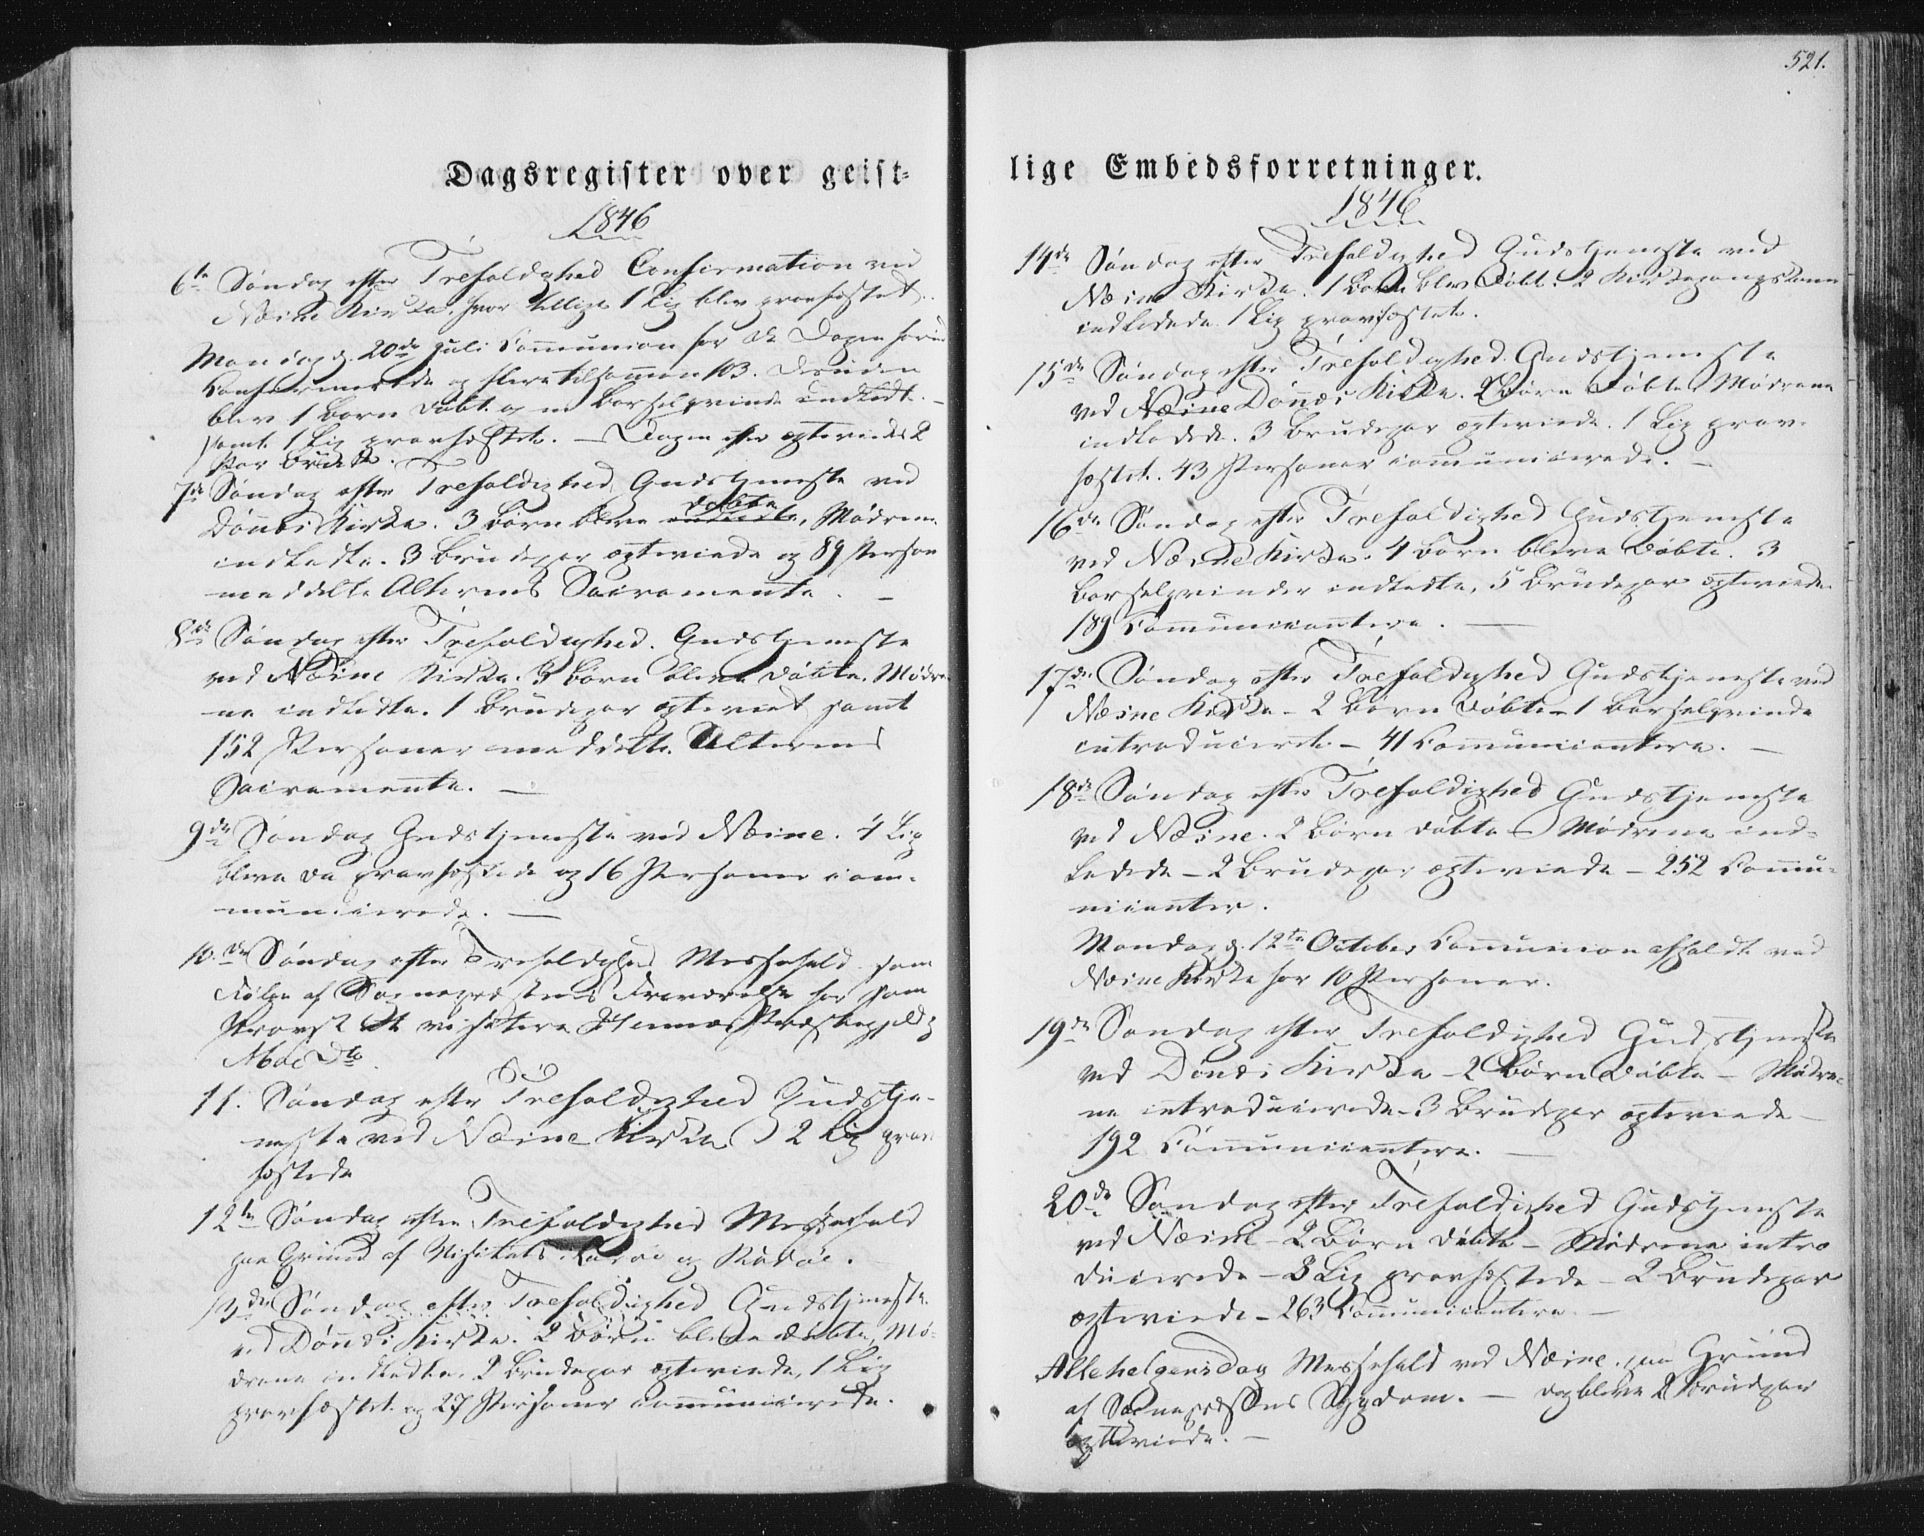 Dagsregister over geist-
1846
6te Søndag efter Trefoldighed Confirmation ved
Næsne Kirke, hvor tillige 1 Lig blev gravfæstet.
Mandag d. 20de Juli Communion for de Dagen forud
Confirmerede og flere tilsammen 103. Desuden
blev 1 Barn døbt og en Barselqvinde indledt
samt 1 Lig gravfæstet. – Dagen efter ægteviedes 2
Par Brudefolk.
7de Søndag efter Trefoldighed Gudstjeneste ved
Dønnæs Kirke. 3 Børn bleve døbte, Mødrene
indledte. 3 Brudepar ægteviede og 89 Personer
meddelte Alterens Sacramente. –
8de Søndag efter Trefoldighed. Gudstjeneste
ved Næsne Kirke. 3 Børn bleve døbte. Mødre-
ne indledte. 1 Brudepar ægteviet samt
152 Personer meddelte Alterens
Sacramente. –
9de Søndag Gudstjeneste ved Næsne. 4 Lig
bleve da gravfæstede og 16 Personer com-
municerede. –
10de Søndag efter Trefoldighed Messefald som
Følge af Sognepræstens Fraværelse for som
Provst at visitere Hemnæs Præstegjeld og
Moe Do.
11. Søndag efter Trefoldighed Gudstje-
neste ved Næsne Kirke 2 Lig grav-
fæstede
12te Søndag efter Trefoldighed Messefald
paa Grund af Visitats i Lurøe og Rødøe.
13de Søndag efter Trefoldighed Gudstjeneste
ved Dønnæs Kirke. 2 Børn bleve døbte, Mø-
drene indledte. 2 Brudepar ægteviede, 1 Lig
gravfæstet og 27 Personer communicerede.
521.
lige Embedsforretninger.
1846
14de Søndag efter Trefoldighed Gudstjeneste ved
Næsne Kirke. 1 Barn blev døbt. 2 Kirkegangskoner
indledede 1 Lig gravfæstet.
15de Søndag efter Trefoldighed Gudstjeneste
ved Næsne Dønnæs Kirke. 2 Børn døbte Mødrene
indledede. 3 Brudepar ægteviede. 1 Lig grav-
fæstet. 43 Personer communicerede. –
16de Søndag efter Trefoldighed Gudstjeneste
ved Næsne Kirke. 4 Børn bleve døbte. 3
Barselqvinder indledte, 5 Brudepar ægteviede
189 Communicantere. –
17de Søndag efter Trefoldighed Gudstjeneste ved
Næsne Kirke – 2 Børn døbte – 1 Barselqvinde
introduceret – 41 Communicantere. –
18de Søndag efter Trefoldighed Gudstjeneste
ved Næsne. 2 Børn døbte – Mødrene ind-
ledede – 2 Brudepar ægteviede – 252 Commu-
nicanter.
Mandag d. 12te October Communion afholdt ved
Næsne Kirke for 10 Personer.
19de Søndag efter Trefoldighed Gudstjeneste
ved Dønnæs Kirke – 2 Børn døbte – Mødre-
ne introducerede – 3 Brudepar ægteviede –
192 Communicantere. –
20de Søndag efter Trefoldighed Gudstjeneste
ved Næsne – 2 Børn døbte – Mødrene intro
ducerede – 3 Lig gravfæstede – 2 Brudepar
ægteviede – 263 Communicantere –
Allehelgensdag Messefald ved Næsne paa Grund
af Sognepræstens Sygdom. – dog bleve 2 Brudepar
ægteviede. –